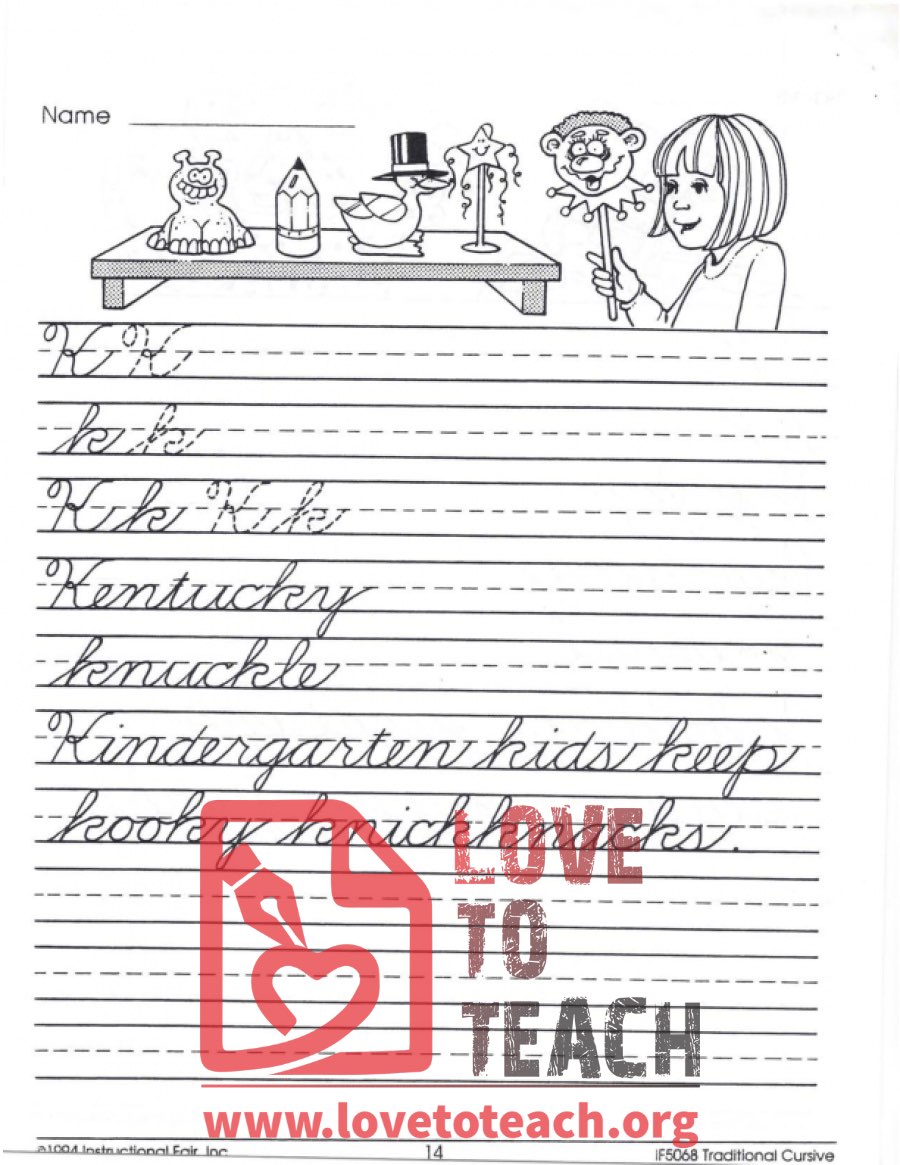 Name
K K
k k
K k K k
Kentucky
knuckle
Kindergarten kids keep
kooky knickknacks.
LOVE
TO
TEACH
www.lovetoteach.org
©1994 Instructional Fair, Inc. 14 IF5068 Traditional Cursive